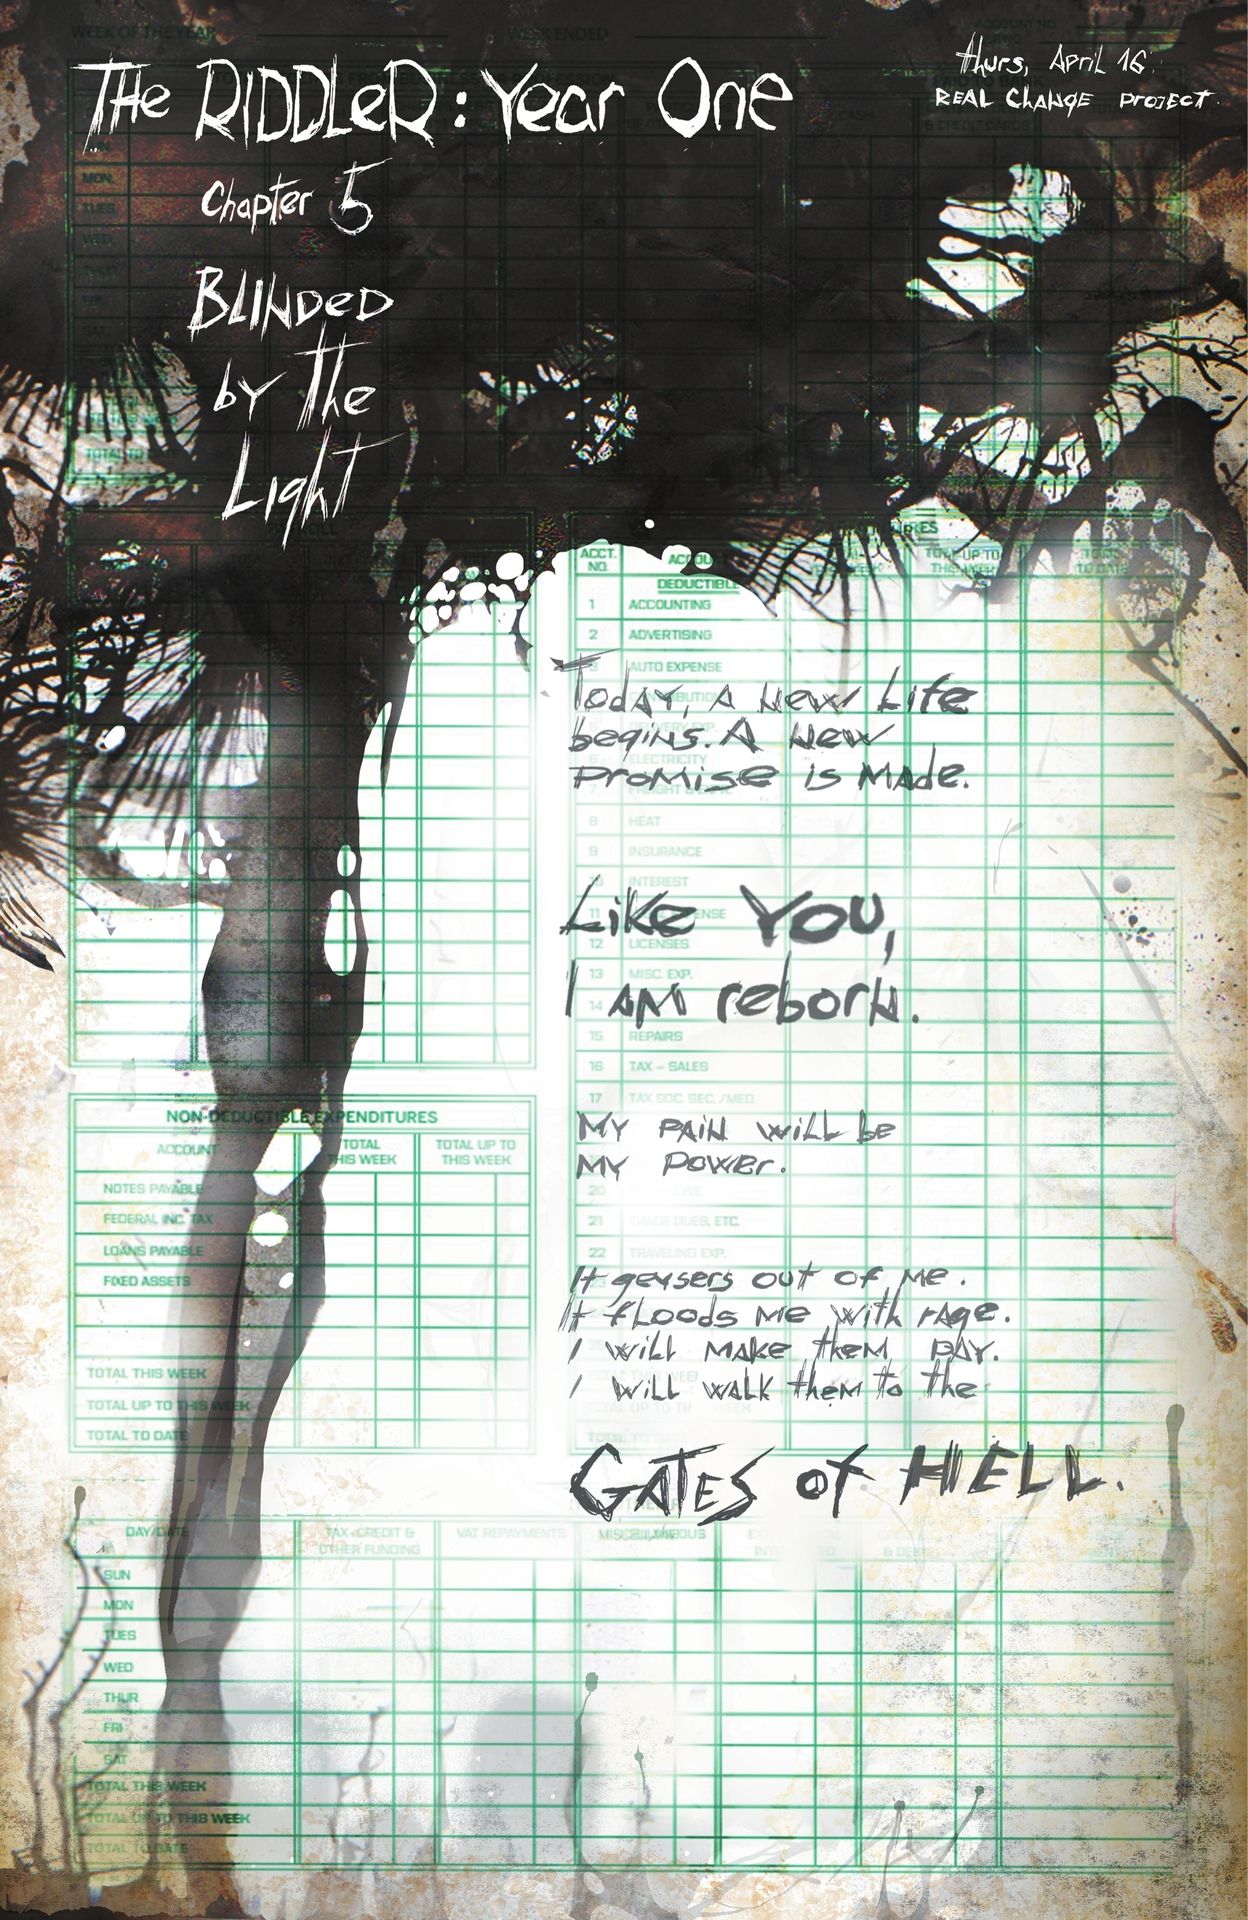 WEEK OF THE YEAR
WEEK ENDED
ACCOUNT NO.
THE RIDDLER: Year One
Thurs, April 16.
REAL CHANGE PROJECT.
Chapter 5
BLINDED
by The
Light
MON.
TUES.
WED.
THUR.
SAT.
& CREDIT CARDS
ACCT. NO.
DEDUCTIBLE
1 ACCOUNTING
2 ADVERTISING
3 AUTO EXPENSE
Today, A New Life
begins. A New
PROMISE is MADE.
6 ELECTRICITY
7
8 HEAT
9 INSURANCE
10 INTEREST
Like YOU,
11
12 LICENSES
13 MISC. EXP.
I AM reborn.
14
15 REPAIRS
16 TAX – SALES
17 TAX SOC. SEC. /MED.
MY PAIN WILL be
MY POWER.
20
21 TRADE DUES, ETC.
22 TRAVELING EXP.
It geysers out of me.
It floods me with rage.
I will MAKE them PAY.
I will WALK them to the
GATES of HELL.
NON-DEDUCTIBLE EXPENDITURES
ACCOUNT
TOTAL THIS WEEK
TOTAL UP TO THIS WEEK
NOTES PAYABLE
FEDERAL INC. TAX
LOANS PAYABLE
FIXED ASSETS
TOTAL THIS WEEK
TOTAL UP TO THIS WEEK
TOTAL TO DATE
DAY/DATE
TAX-CREDIT & OTHER FUNDING
VAT REPAYMENTS
SUN
MON
TUES
WED
THUR
FRI
SAT
TOTAL THIS WEEK
TOTAL UP TO THIS WEEK
TOTAL TO DATE